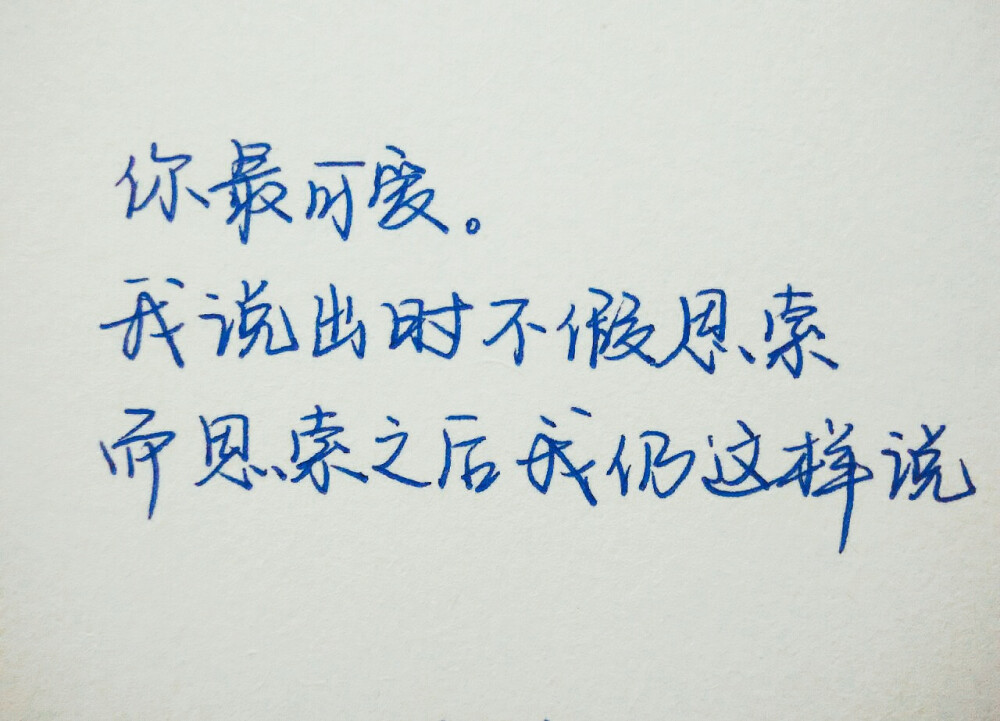 你最可爱。
我说出时不假思索
而思索之后我仍这样说